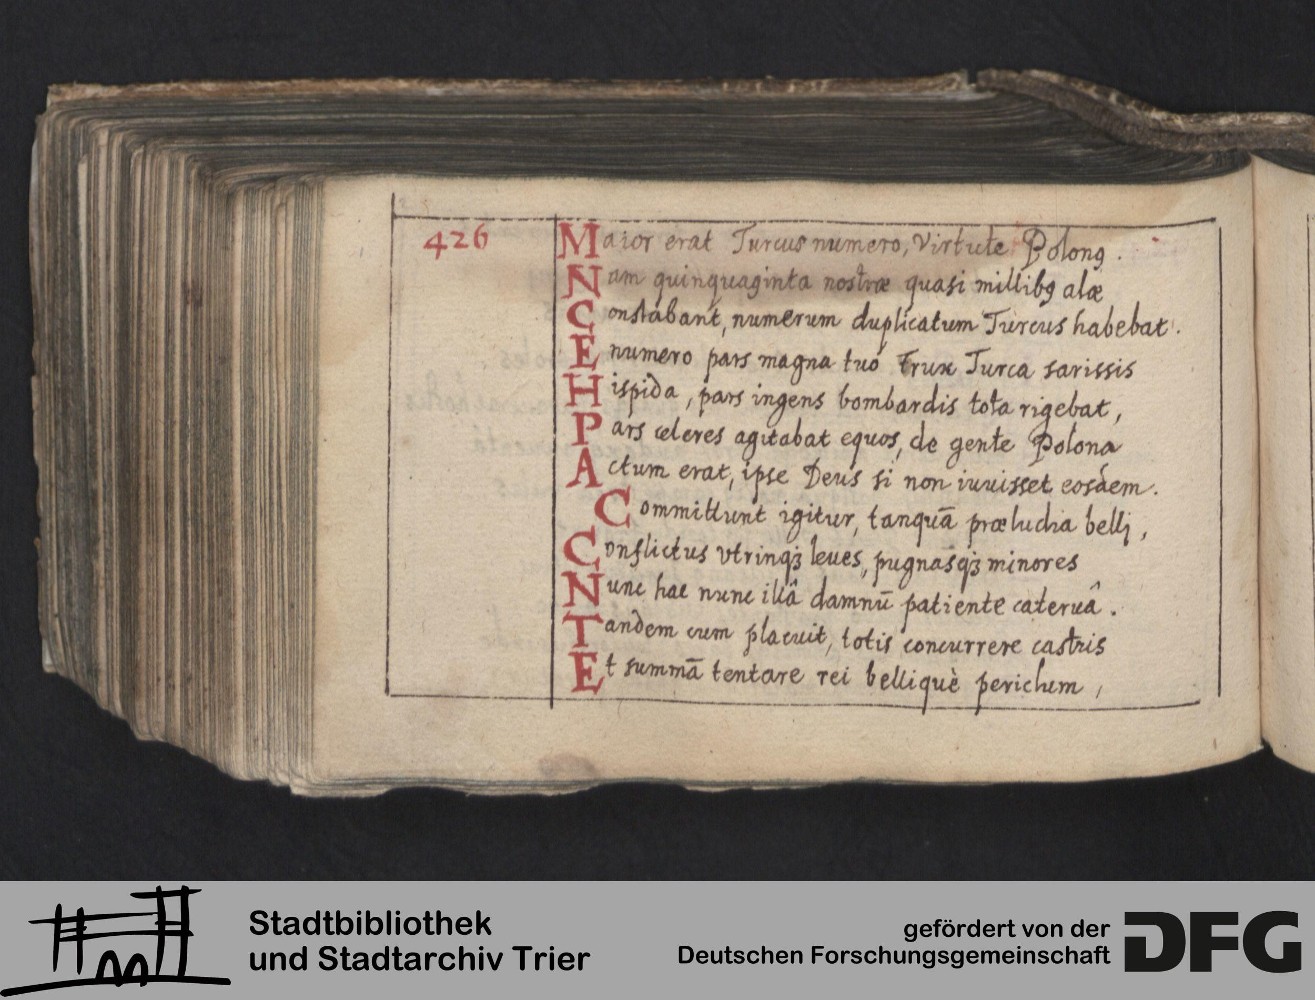 426
Maior erat Turcus numero, Virtute Polonꝰ.
Nam quinquaginta nostræ quasi millibꝰ alæ
Constabant, numerum duplicatum Turcus habebat.
E numero pars magna tuo trux Turca sarissis
Hispida, pars ingens bombardis tota rigebat,
Pars celeres agitabat equos, de gente Polona
Actum erat, ipse Deus si non iuuisset eosdem.
Committunt igitur, tanquā præludia belli,
Conflictus vtrinqꝫ leues, pugnasqꝫ minores
Nunc hac nunc illâ damnū patiente cateruâ.
Tandem cum placuit, totis concurrere castris
Et summā tentare rei bellique periclum,
Stadtbibliothek
und Stadtarchiv Trier
gefördert von der
Deutschen Forschungsgemeinschaft
DFG